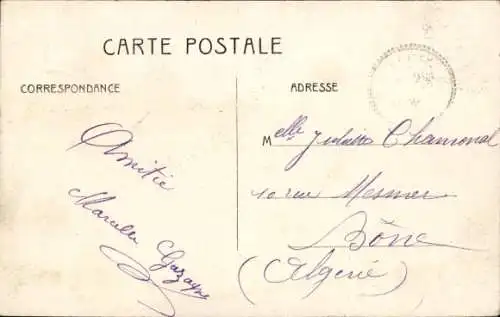 CARTE POSTALE
CORRESPONDANCE
ADRESSE
Amitié
Marcelle
Melle Juliette Chamonal
10 rue Mesmer
Bône
(Algérie)